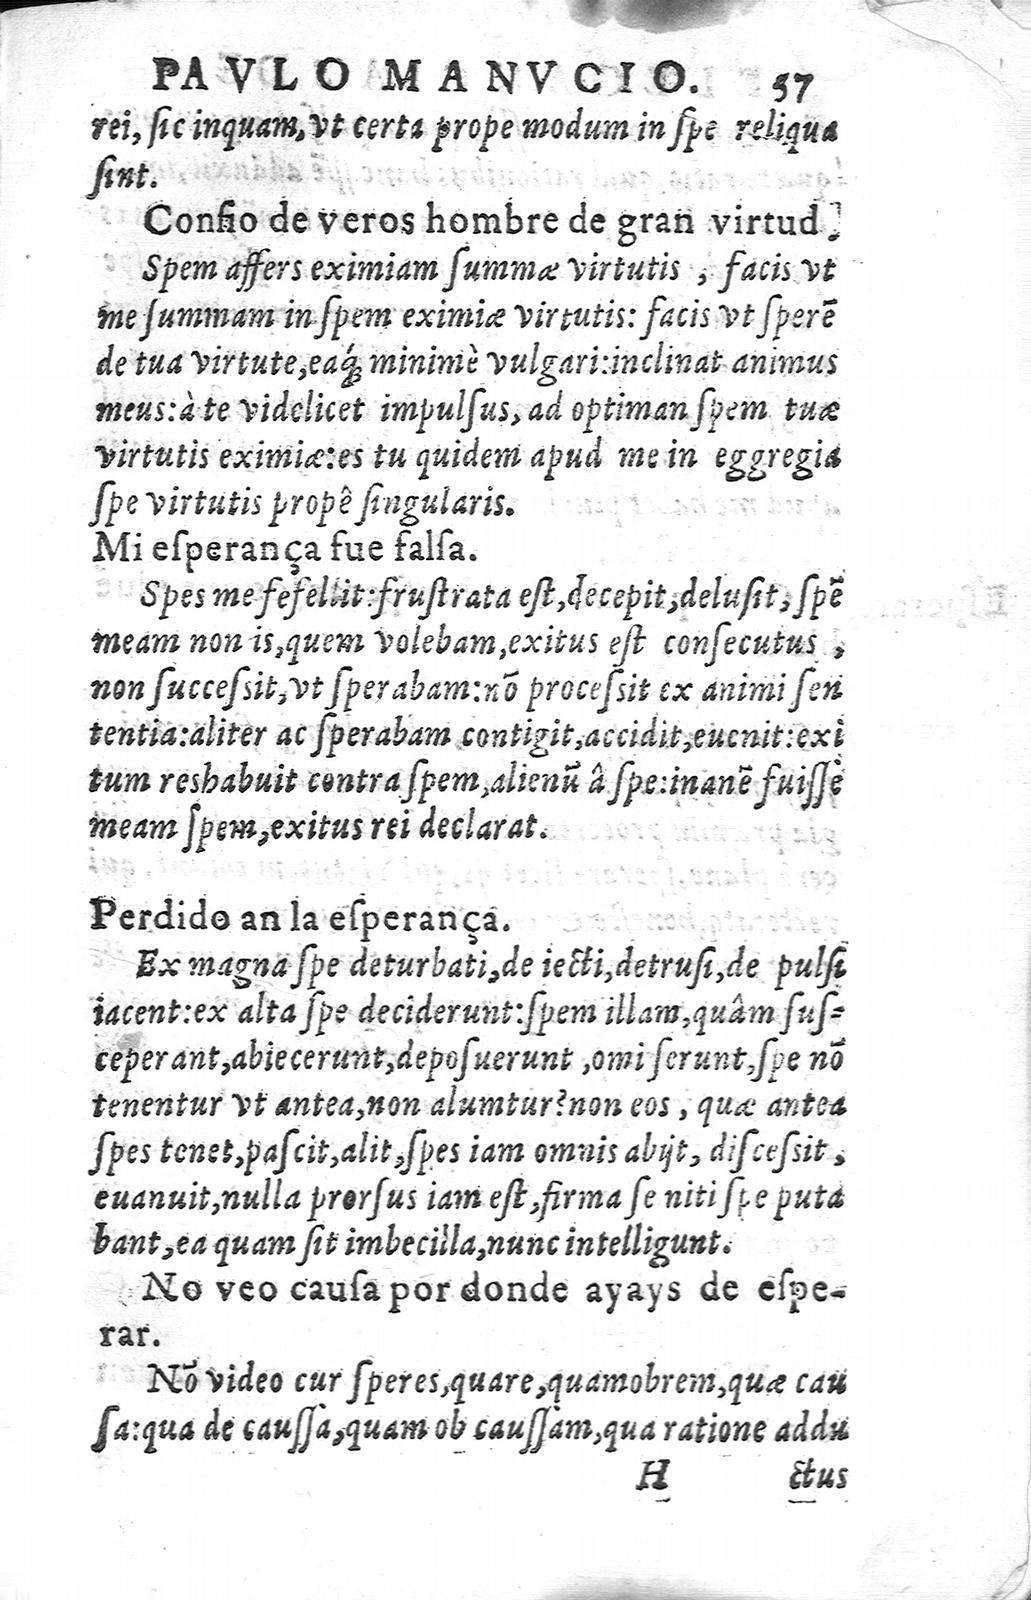 PAVLO MANVCIO. 57
rei, ſic inquam, vt certa prope modum in ſpe reliqua
ſint.
Confio de veros hombre de gran virtud.
Spem affers eximiam ſummæ virtutis , facis vt
me ſummam in ſpem eximiæ virtutis: facis vt ſperẽ
de tua virtute,eaq́; minimè vulgari:inclinat animus
meus:à te videlicet impulſus, ad optiman ſpem tuæ
virtutis eximiæ:es tu quidem apud me in eggregia
ſpe virtutis propê ſingularis.
Mi eſperança fue falſa.
Spes me fefellit:fruſtrata eſt,decepit,deluſit, ſpẽ
meam non is,quem volebam,exitus eſt conſecutus ,
non ſucceſsit,vt ſperabam:nõ proceſsit ex animi ſen
tentia:aliter ac ſperabam contigit,accidit,euenit:exi
tum reshabuit contra ſpem,alienũ â ſpe:inanẽ fuiſſè
meam ſpem,exitus rei declarat.
Perdido an la eſperança.
Ex magna ſpe deturbati,de iecti,detruſi,de pulſi
iacent:ex alta ſpe deciderunt:ſpem illam,quâm ſuſ-
ceperant,abiecerunt,depoſuerunt ,omi ſerunt,ſpe nõ
tenentur vt antea,non alumtur?non eos , quæ antea
ſpes tenet,paſcit,alit,ſpes iam omnis abijt, diſceſsit ,
euanuit,nulla prorſus iam eſt,firma ſe niti ſpe puta
bant,ea quam ſit imbecilla,nunc intelligunt.
No veo cauſa por donde ayays de eſpe-
rar.
Nõ video cur ſperes,quare,quamobrem,quæ cau
ſa:qua de cauſſà,quam ob cauſſàm,qua ratione addu
H ctus